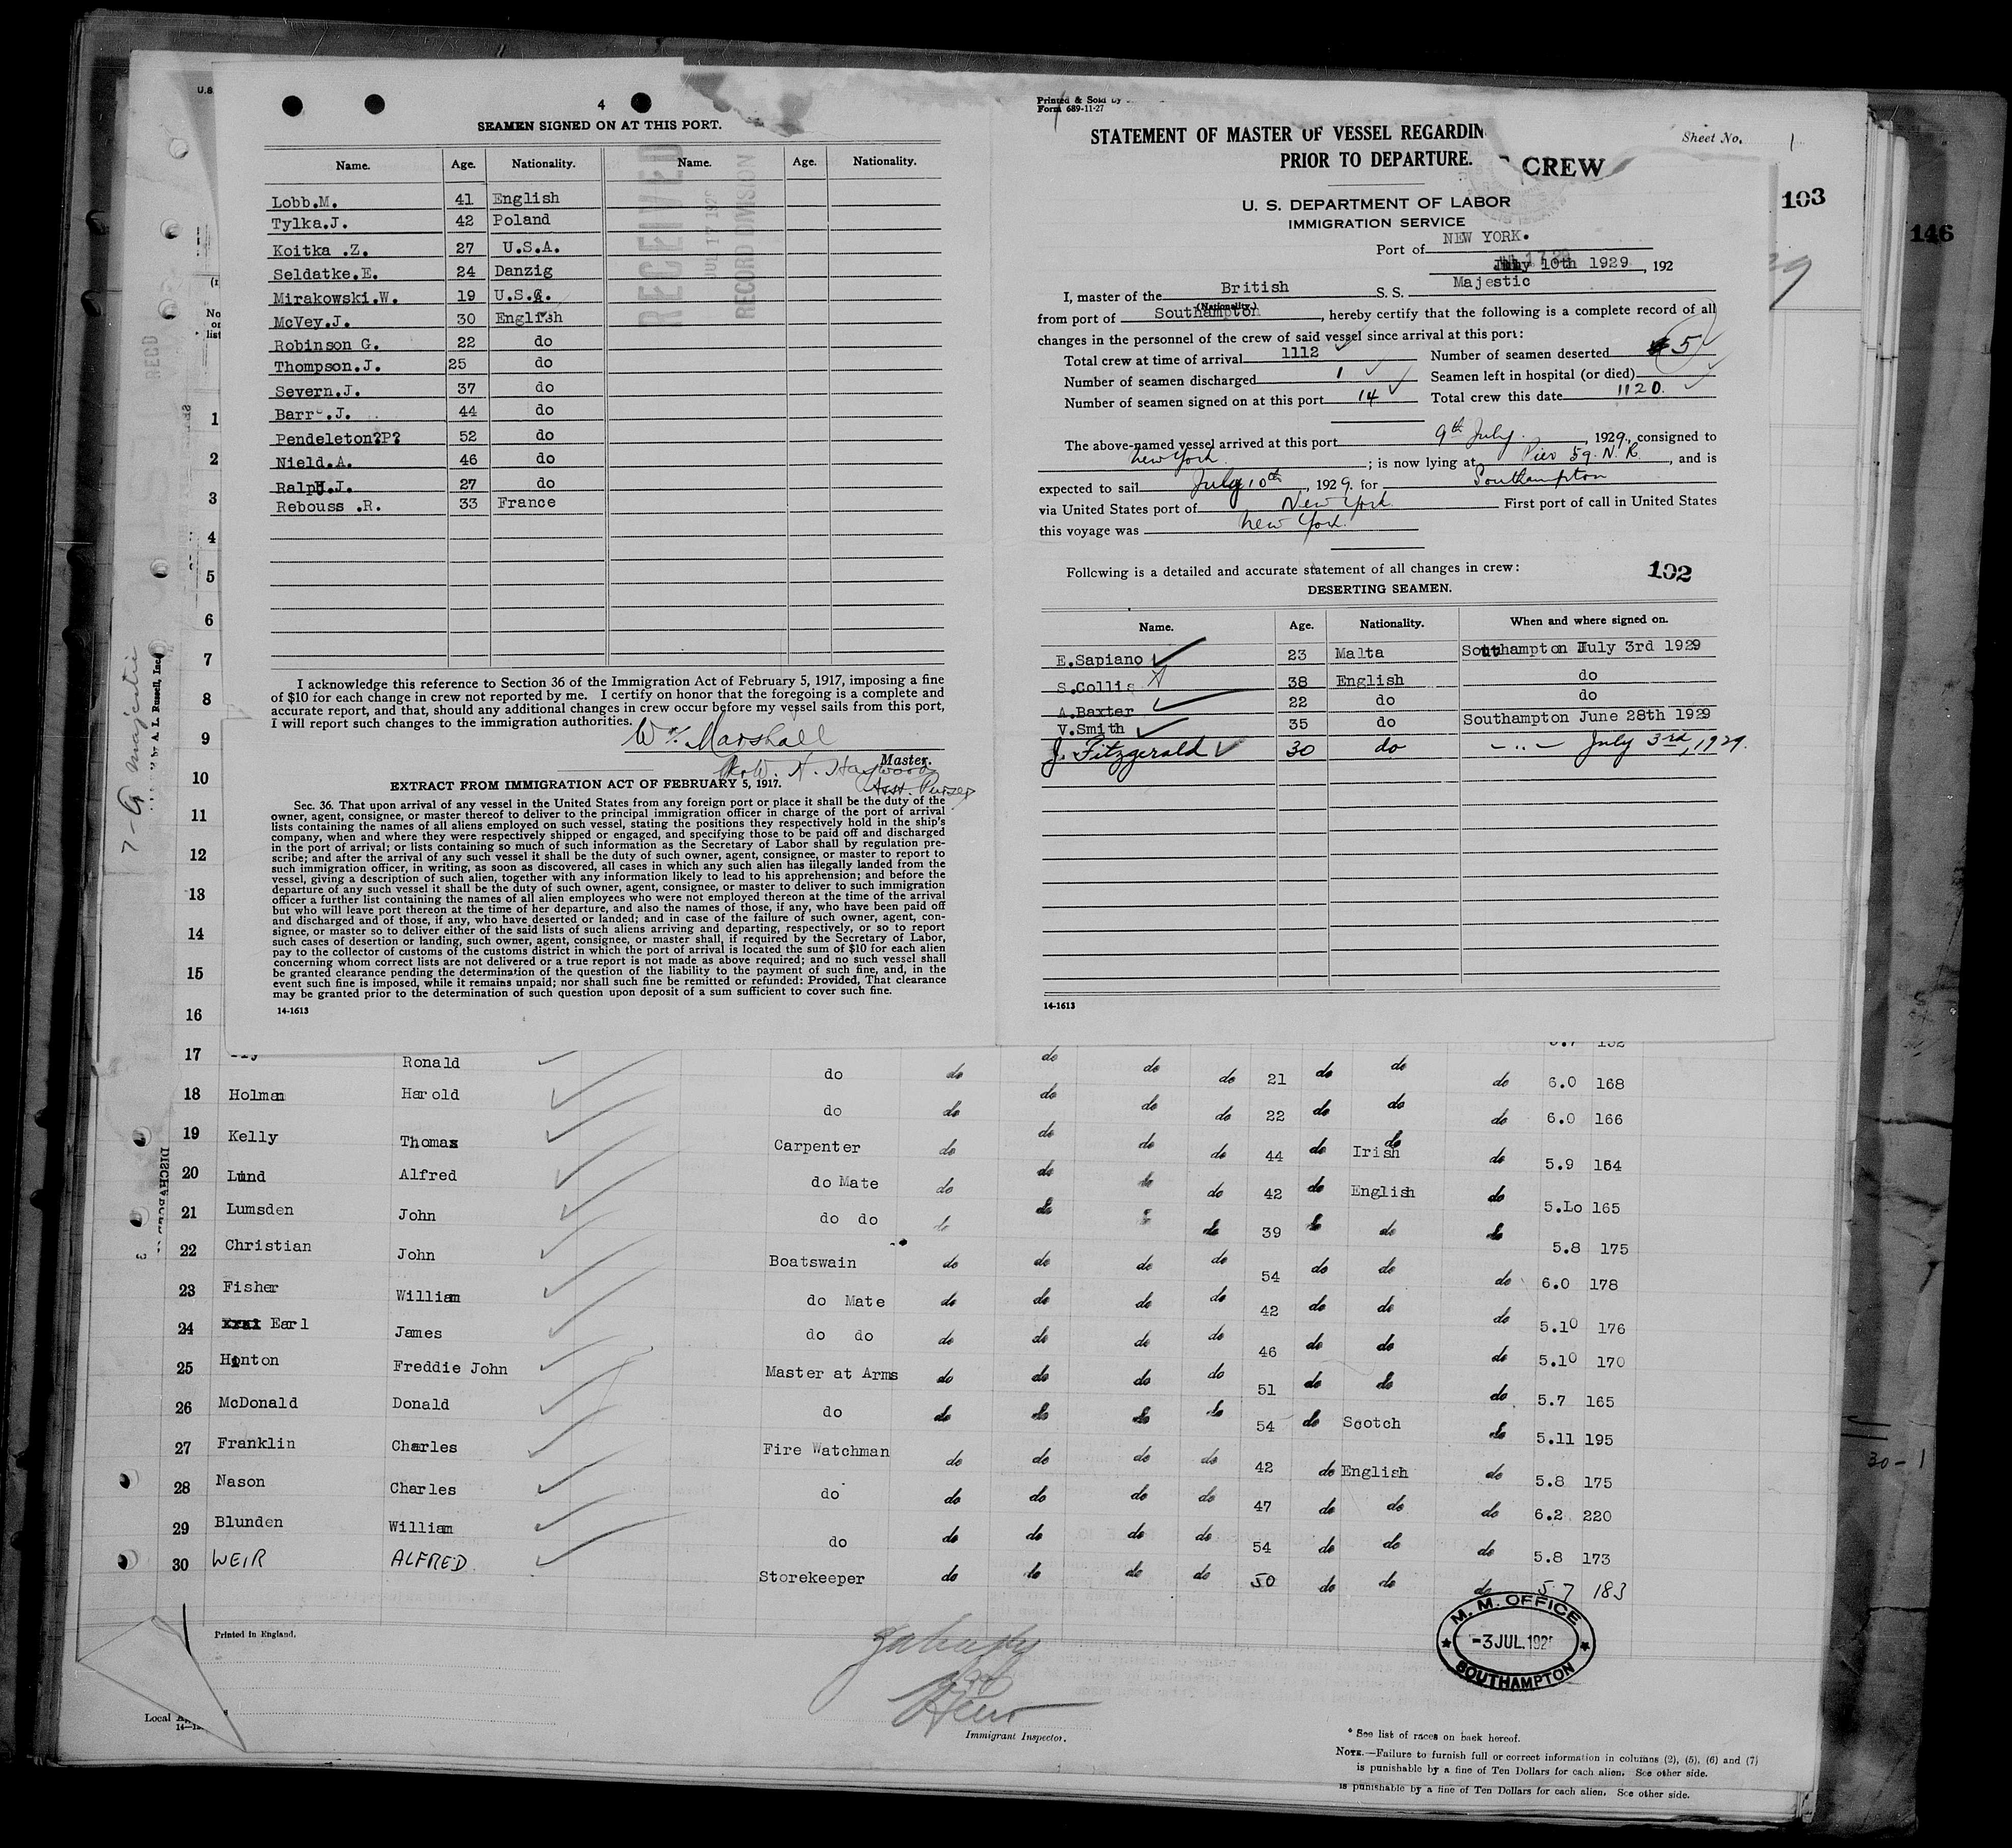 4
SEAMEN SIGNED ON AT THIS PORT.
Name. Age. Nationality. Name. Age. Nationality.
Lobb.M. 41 English
Tylka.J. 42 Poland
Koitka .Z. 27 U.S.A.
Seldatke.E. 24 Danzig
Mirakowski.W. 19 U.S.A.
McVey.J. 30 English
Robinson G. 22 do
Thompson.J. 25 do
Severn.J. 37 do
Barr .J. 44 do
Pendeleton?P? 52 do
Nield.A. 46 do
Ralph.J. 27 do
Rebouss .R. 33 France
RECEIVED
JUL 17 1929
RECORD DIVISION
I acknowledge this reference to Section 36 of the Immigration Act of February 5, 1917, imposing a fine
of $10 for each change in crew not reported by me. I certify on honor that the foregoing is a complete and
accurate report, and that, should any additional changes in crew occur before my vessel sails from this port,
I will report such changes to the immigration authorities.
Wm. Marshall
Master.
Per W. H. Haywood
Asst. Purser
EXTRACT FROM IMMIGRATION ACT OF FEBRUARY 5, 1917.
Sec. 36. That upon arrival of any vessel in the United States from any foreign port or place it shall be the duty of the
owner, agent, consignee, or master thereof to deliver to the principal immigration officer in charge of the port of arrival
lists containing the names of all aliens employed on such vessel, stating the positions they respectively hold in the ship's
company, when and where they were respectively shipped or engaged, and specifying those to be paid off and discharged
in the port of arrival; or lists containing so much of such information as the Secretary of Labor shall by regulation pre-
scribe; and after the arrival of any such vessel it shall be the duty of such owner, agent, consignee, or master to report to
such immigration officer, in writing, as soon as discovered, all cases in which any such alien has illegally landed from the
vessel, giving a description of such alien, together with any information likely to lead to his apprehension; and before the
departure of any such vessel it shall be the duty of such owner, agent, consignee, or master to deliver to such immigration
officer a further list containing the names of all alien employees who were not employed thereon at the time of the arrival
but who will leave port thereon at the time of her departure, and also the names of those, if any, who have been paid off
and discharged and of those, if any, who have deserted or landed; and in case of the failure of such owner, agent, con-
signee, or master so to deliver either of the said lists of such aliens arriving and departing, respectively, or so to report
such cases of desertion or landing, such owner, agent, consignee, or master shall, if required by the Secretary of Labor,
pay to the collector of customs of the customs district in which the port of arrival is located the sum of $10 for each alien
concerning whom correct lists are not delivered or a true report is not made as above required; and no such vessel shall
be granted clearance pending the determination of the question of the liability to the payment of such fine, and, in the
event such fine is imposed, while it remains unpaid; nor shall such fine be remitted or refunded: Provided, That clearance
may be granted prior to the determination of such question upon deposit of a sum sufficient to cover such fine.
14-1613
Printed & Sold by
Form 689-11-27
STATEMENT OF MASTER OF VESSEL REGARDIN
PRIOR TO DEPARTURE.
CREW
Sheet No. 1
103
146
U. S. DEPARTMENT OF LABOR
IMMIGRATION SERVICE
Port of NEW YORK.
July 10th 1929, 192
I, master of the British S. S. Majestic
(Nationality.)
from port of Southampton, hereby certify that the following is a complete record of all
changes in the personnel of the crew of said vessel since arrival at this port:
Total crew at time of arrival 1112 Number of seamen deserted 5
Number of seamen discharged 1 Seamen left in hospital (or died)
Number of seamen signed on at this port 14 Total crew this date 1120.
The above-named vessel arrived at this port 9th July., 1929., consigned to
New York ; is now lying at Pier 59. N. R., and is
expected to sail July 10th, 1929. for Southampton
via United States port of New York. First port of call in United States
this voyage was New York.
Following is a detailed and accurate statement of all changes in crew: 102
DESERTING SEAMEN.
Name. Age. Nationality. When and where signed on.
E.Sapiano 23 Malta Southampton July 3rd 1929
S.Collis 38 English do
A.Baxter 22 do do
V.Smith 35 do Southampton June 28th 1929
J. Fitzgerald 30 do - " - July 3rd, 1929.
14-1613
U.S.
No
on
list
7-9 Majestic
by A. L. Russell, Inc
1
2
3
4
5
6
7
8
9
10
11
12
13
14
15
16
17 Ronald do do do do do 21 do do do 6.0 168
18 Holman Harold do do do do do 22 do do do 6.0 166
19 Kelly Thomas Carpenter do do do do 44 do Irish do 5.9 164
20 Lund Alfred do Mate do do do do 42 do English do 5.Lo 165
21 Lumsden John do do do do do do 39 do do do 5.8 175
22 Christian John Boatswain do do do do 54 do do do 6.0 178
23 Fisher William do Mate do do do do 42 do do do 5.10 176
24 Earl James do do do do do do 46 do do do 5.10 170
25 Hinton Freddie John Master at Arms do do do do 51 do do do 5.7 165
26 McDonald Donald do do do do do 54 do Scotch do 5.11 195
27 Franklin Charles Fire Watchman do do do do 42 do English do 5.8 175
28 Nason Charles do do do do do 47 do do do 6.2 220
29 Blunden William do do do do do 54 do do do 5.8 173
30 WEIR ALFRED Storekeeper do do do do 50 do do do 5.7 183
30-1
Printed in England.
M. M. OFFICE
-3 JUL. 192
SOUTHAMPTON
Immigrant Inspector.
Local
* See list of races on back hereof.
NOTE.—Failure to furnish full or correct information in columns (2), (5), (6) and (7)
is punishable by a fine of Ten Dollars for each alien. See other side.
is punishable by a fine of Ten Dollars for each alien. See other side.